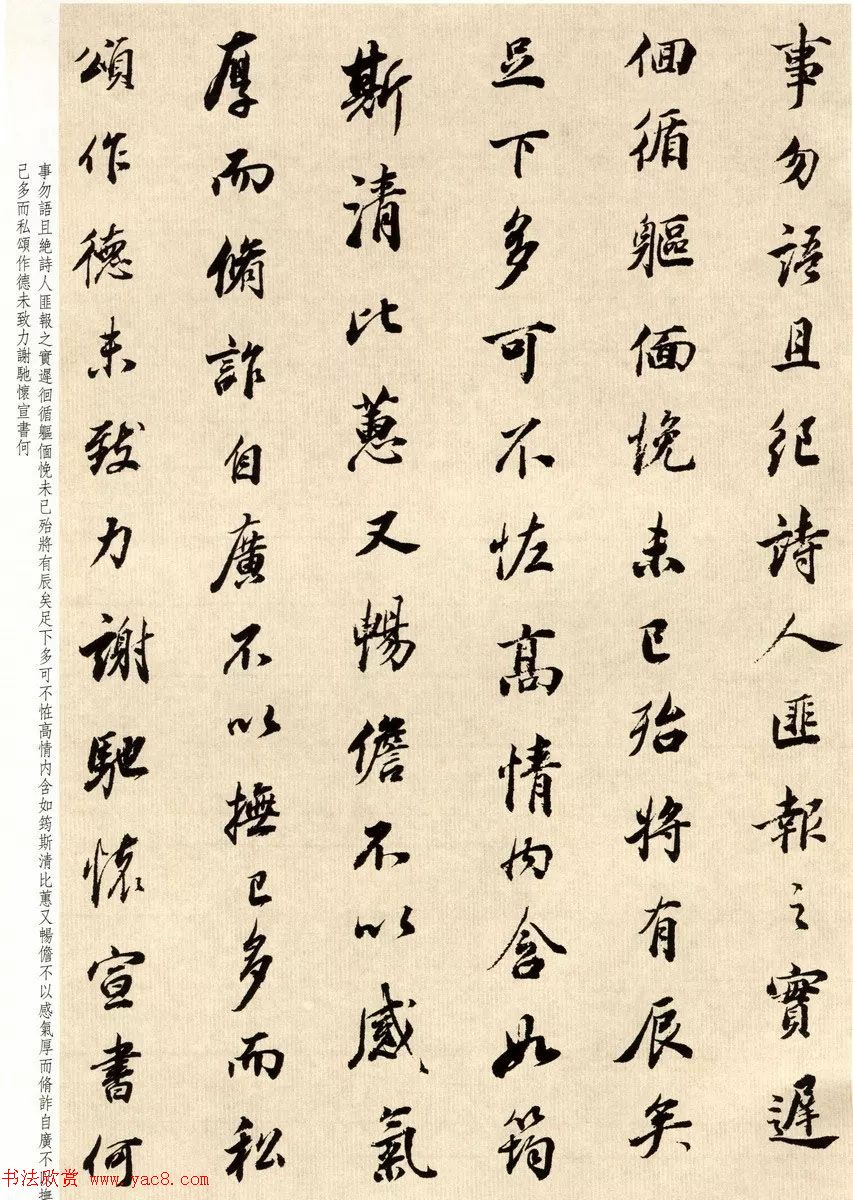 事勿語且絕詩人匪報之實遲
佪循軀偭悗未已殆將有辰矣
足下多可不恠高情內含如筠
斯清比蕙又暢儋不以感氣
厚而脩詐自廣不以撫已多而私
頌作德未致力謝馳懷宣書何
事勿語且絕詩人匪報之實遲徊循軀偭悗未已殆將有辰矣足下多可不恠高情内含如筠斯清比蕙又暢儋不以感氣厚而脩詐自廣不以撫
己多而私頌作德未致力謝馳懷宣書何
书法欣赏 www.yac8.com